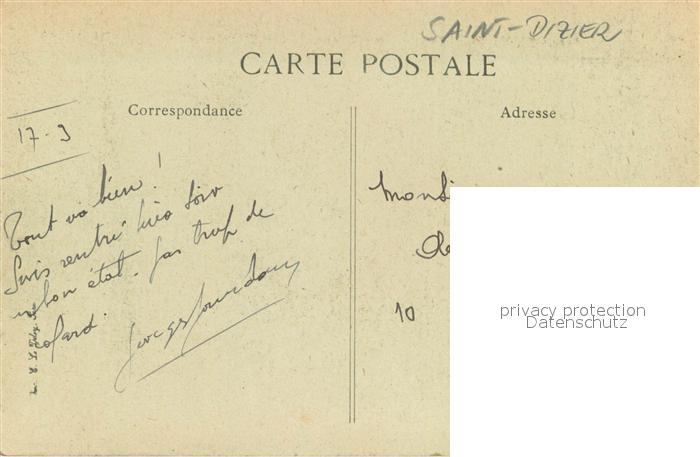 SAINT-DIZIER
CARTE POSTALE
Correspondance
Adresse
17-3
Tout va bien!
Suis rentré hier soir
en bon état. pas trop de
cafard.
10
privacy protection
Datenschutz